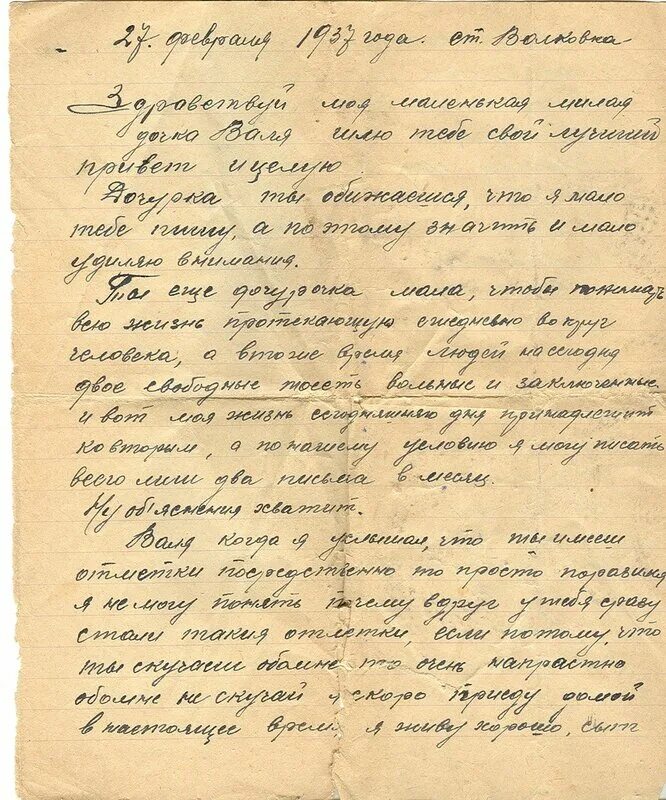 27. февраля 1937 года. ст. Волковка
Здравствуй моя маленькая милая
дочка Валя шлю тебе свой лучший
привет и целую
Дочурка ты обижаешися, что я мало
тебе пишу, а поэтому значить и мало
уделяю внимания.
Ты еще дочурочка мала, чтобы понимать
всю жизнь протекающую ежедневно вокруг
человека, а втоже время людей насегодня
двое свободные тоесть вольные и заключенные
и вот моя жизнь сегодняшняю дня принадлежит
ковторым, а понашему условию я могу писать
всего лиш два письма в месяц.
Ну обяснения хватит.
Валя когда я услышал, что ты имееш
отметки посредственно то просто поразился
я не могу понять почему вдруг у тебя сразу
стали такия отметки, если потому, что
ты скучаеш обомне то очень напрастно
обомне не скучай я скоро приеду домой
в настоящее время я живу хорошо, сыт